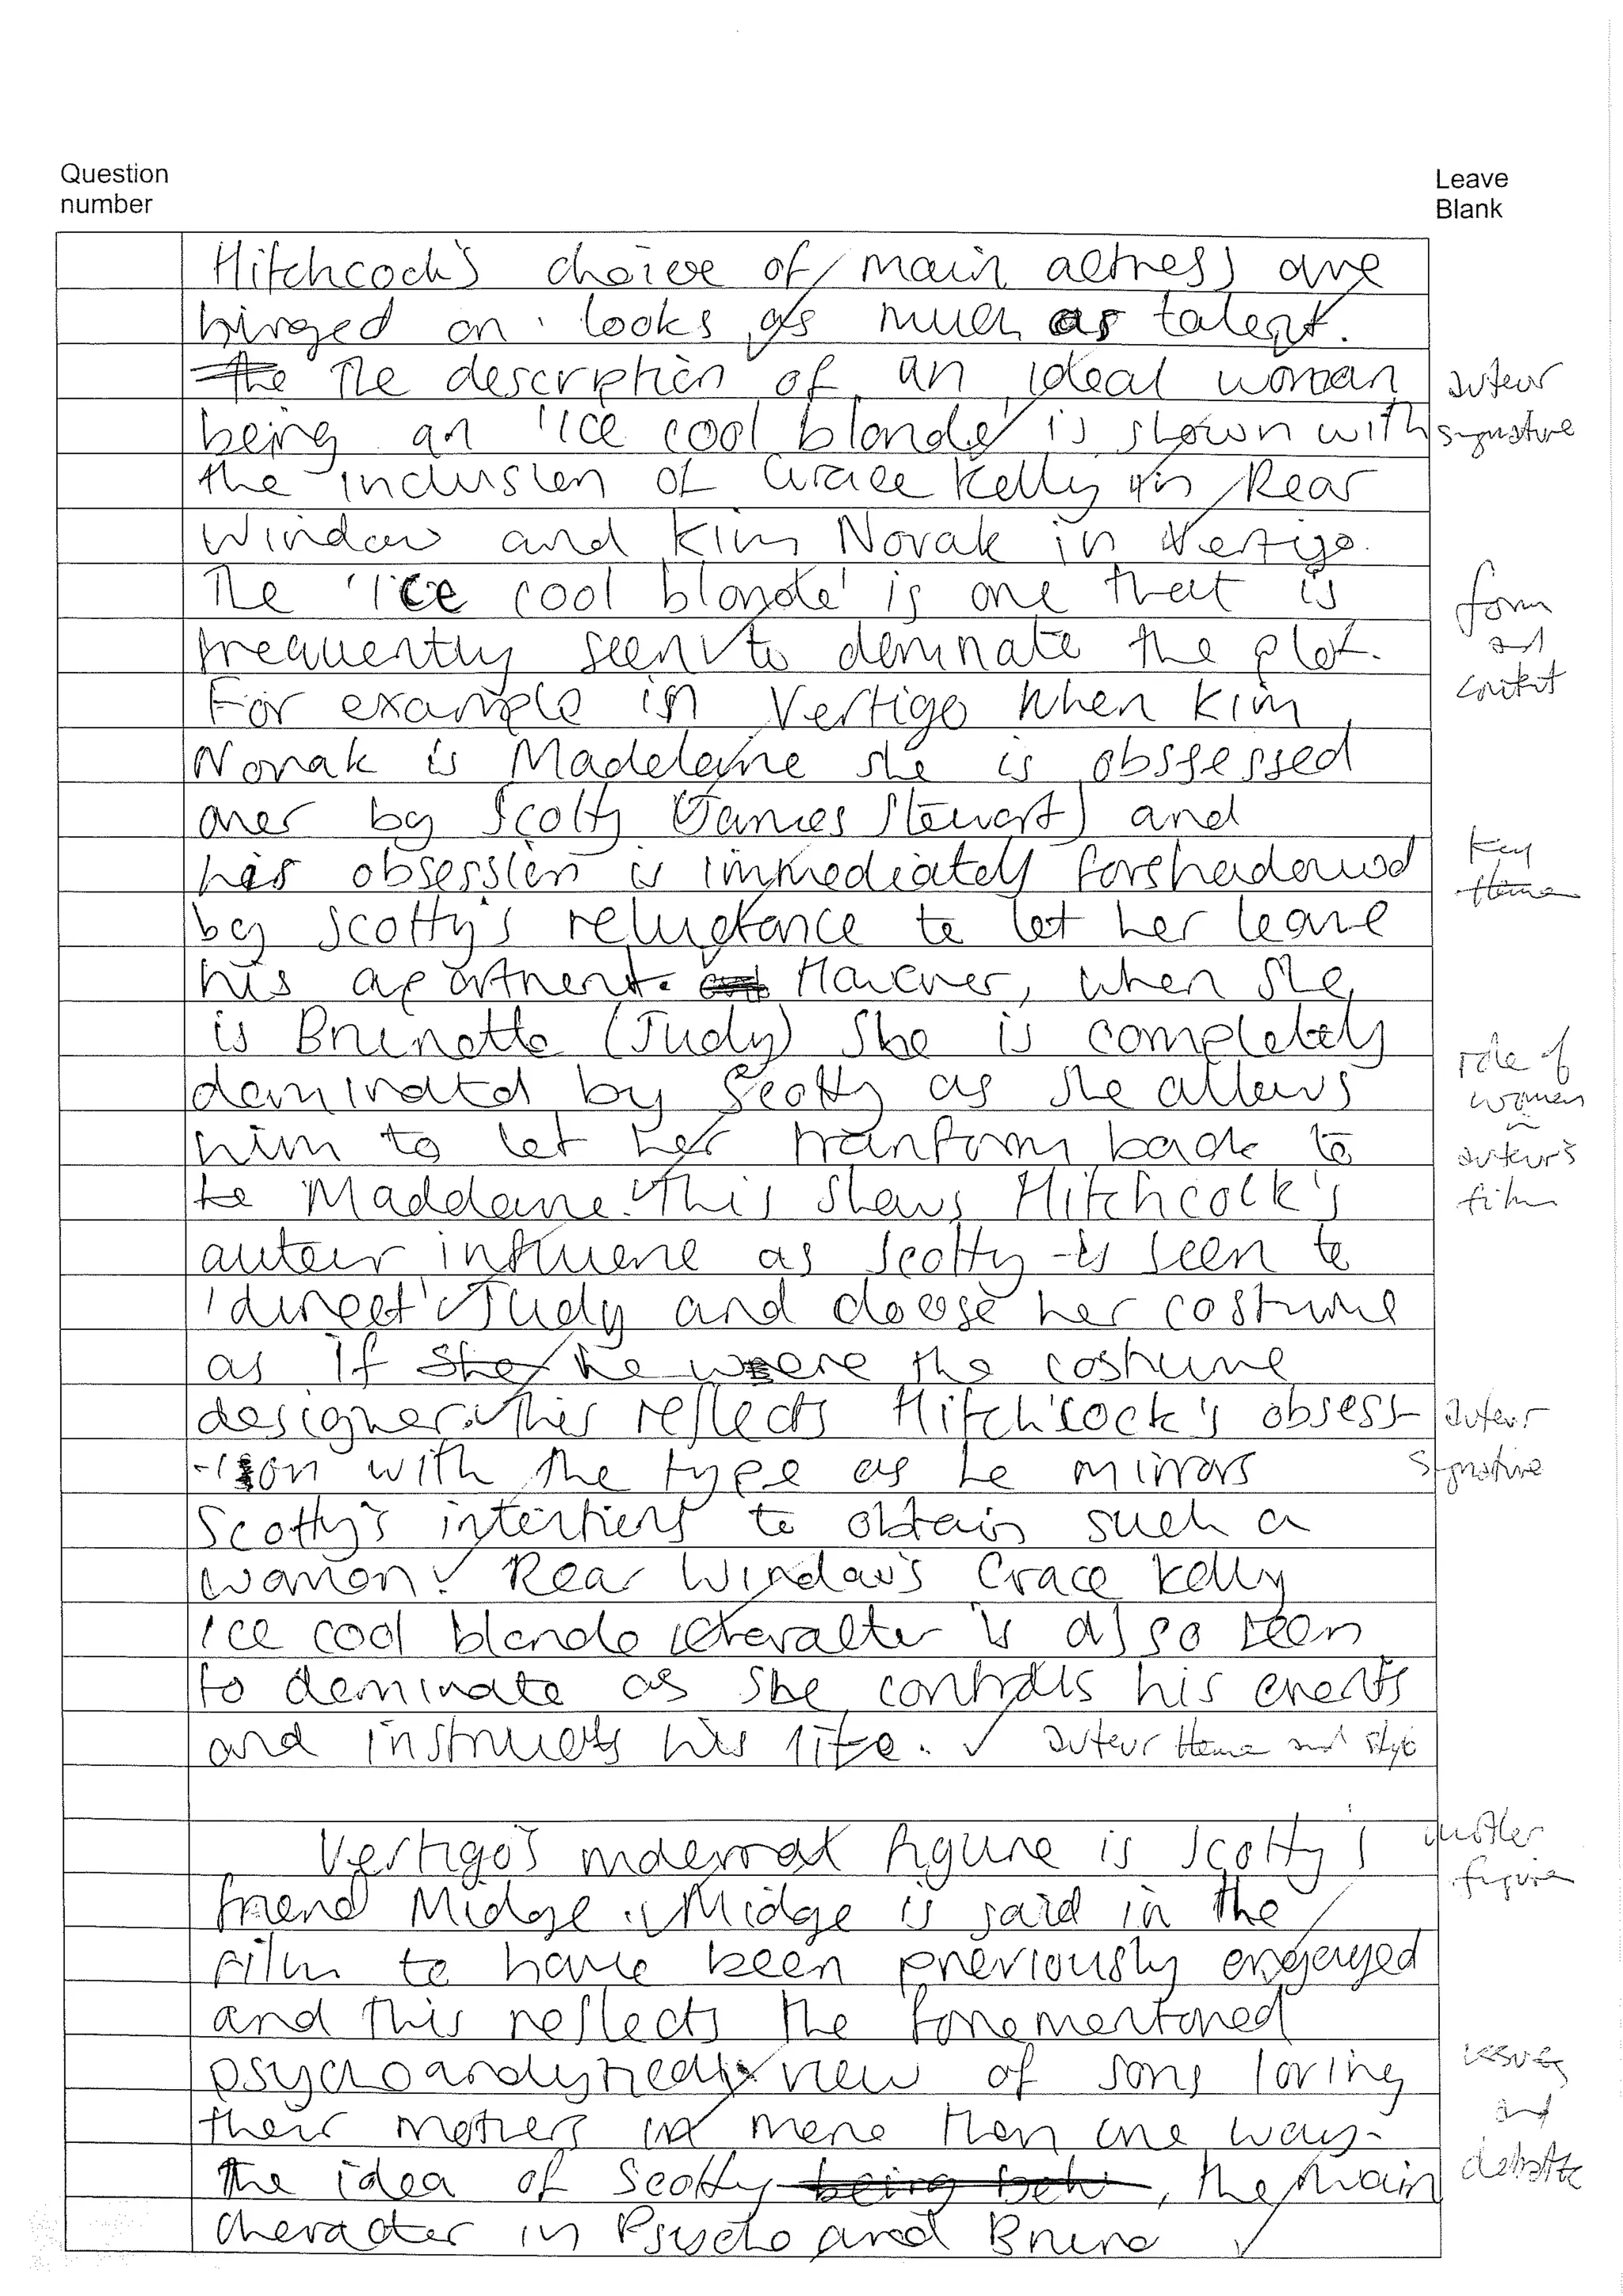 Question
number
Leave
Blank
Hitchcock's choice of main actress are
hinged on looks as much as talent.
The The description of an ideal woman
auteur
being an 'ice cool blonde' is shown with
signature
the inclusion of Grace Kelly in Rear
Window and Kim Novak in Vertigo.
The 'ice cool blonde' is one that is
form
frequently seen to dominate the plot.
and
content
For example in Vertigo when Kim
Novak is Madeleine she is obssessed
over by Scotty (James Stewart) and
his obsession is immediately forshadowed
Key
theme
by Scotty's reluctance to let her leave
his apartment. However, when she
is Brunette (Judy) she is completely
role of
dominated by Scotty as she allows
women
in
him to let her tranform back to
auteur's
be Maddeine. This shows Hitchcock's
film
auteur influene as Scotty is seen to
'direct' Judy and choose her costume
as if she he were the costume
designer. This reflects Hitchcock's obsess-
auteur
-ion with the type as he mirrors
signature
Scotty's intentions to obtain such a
woman. Rear Window's Grace Kelly
ice cool blonde character is also seen
to dominate as she controls his events
and instructs his life. ✓ auteur theme and style
Vertigo's maternal figure is Scotty's
mother
friend Midge. Midge is said in the
figure
film to have been previously engaged
and this reflects the forementioned
psychoanalytical view of sons loving
issues
their mothers in more than one way.
and
the idea of Scotty being , the main
debate
character in Psycho and Bruno ✓